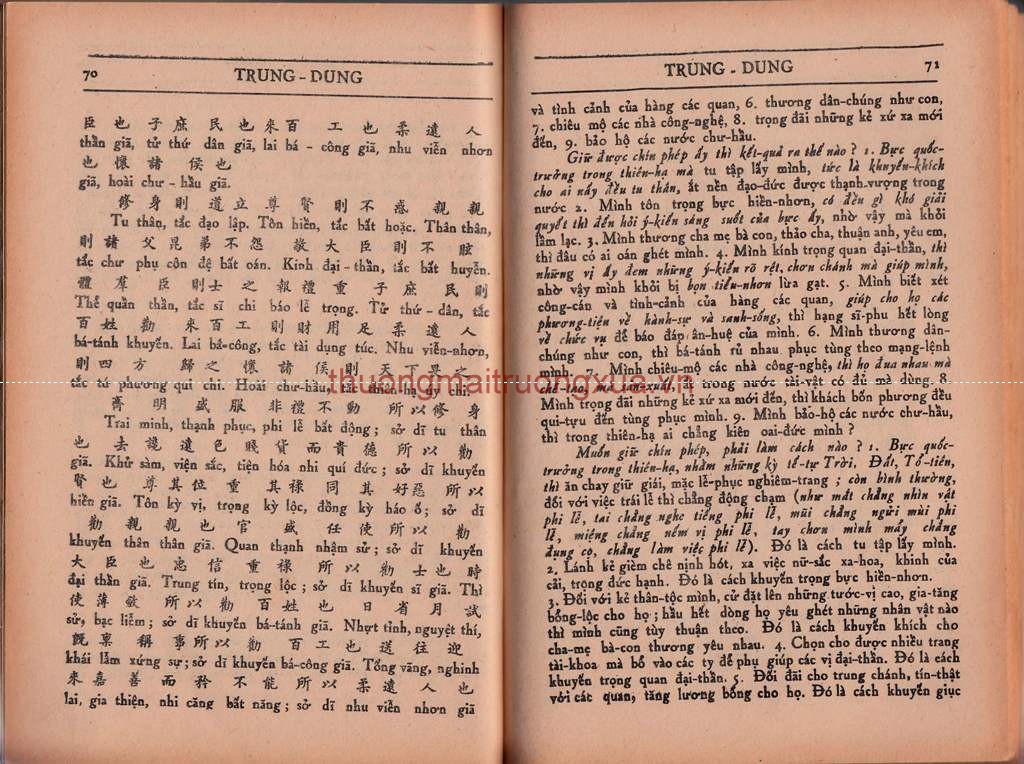 70 TRUNG - DUNG
臣 也 子 庶 民 也 來 百 工 也 柔 遠 人
thần giã, tử thứ dân giã, lai bá - công giã, nhu viễn nhơn
也 懷 諸 侯 也
giã, hoài chư - hầu giã.
修 身 則 道 立 尊 賢 則 不 惑 親 親
Tu thân, tắc đạo lập. Tôn hiền, tắc bất hoặc. Thân thân,
則 諸 父 昆 弟 不 怨 敬 大 臣 則 不 眩
tắc chư phụ côn đệ bất oán. Kính đại - thần, tắc bất huyễn.
體 羣 臣 則 士 之 報 禮 重 子 庶 民 則
Thể quần thần, tắc sĩ chi báo lễ trọng. Tử thứ - dân, tắc
百 姓 勸 來 百 工 則 財 用 足 柔 遠 人
bá-tánh khuyến. Lai bá-công, tắc tài dụng túc. Nhu viễn-nhơn,
則 四 方 歸 之 懷 諸 侯 則 天 下 畏 之
tắc tứ phương qui chi. Hoài chư-hầu, tắc thiên-hạ úy chi.
齊 明 盛 服 非 禮 不 動 所 以 修 身
Trai minh, thạnh phục, phi lễ bất động ; sở dĩ tu thân
也 去 讒 遠 色 賤 貨 而 貴 德 所 以 勸
giã. Khử sàm, viện sắc, tiện hóa nhi quí đức ; sở dĩ khuyến
賢 也 尊 其 位 重 其 祿 同 其 好 惡 所 以
hiền giã. Tôn kỳ vị, trọng kỳ lộc, đồng kỳ háo ố ; sở dĩ
勸 親 親 也 官 盛 任 使 所 以 勸
khuyến thân thân giã. Quan thạnh nhậm sử ; sở dĩ khuyến
大 臣 也 忠 信 重 祿 所 以 勸 士 也 時
đại thần giã. Trung tín, trọng lộc ; sở dĩ khuyến sĩ giã. Thì
使 薄 斂 所 以 勸 百 姓 也 日 省 月 試
sử, bạc liễm ; sở dĩ khuyến bá-tánh giã. Nhựt tỉnh, nguyệt thí,
既 稟 稱 事 所 以 勸 百 工 也 送 往 迎
khái lẫm xứng sự ; sở dĩ khuyến bá-công giã. Tống vãng, nghinh
來 嘉 善 而 矜 不 能 所 以 柔 遠 人 也
lai, gia thiện, nhi căng bất năng ; sở dĩ nhu viễn nhơn giã
TRUNG - DUNG 71
và tình cảnh của hàng các quan, 6. thương dân-chúng như con,
7. chiêu mộ các nhà công-nghệ, 8. trọng đãi những kẻ xứ xa mới
đến, 9. bảo hộ các nước chư-hầu.
Giữ được chín phép ấy thì kết-quả ra thể nào ? 1. Bực quốc-
trưởng trong thiên-hạ mà tu tập lấy mình, tức là khuyến-khích
cho ai nấy đều tu thân, ắt nền đạo-đức được thạnh-vượng trong
nước 2. Mình tôn trọng bực hiền-nhơn, có đều gì khó giải
quyết thì đến hỏi ý-kiến sáng suốt của bực ấy, nhờ vậy mà khỏi
lầm lạc. 3. Mình thương cha mẹ bà con, thảo cha, thuận anh, yêu em,
thì đâu có ai oán ghét mình. 4. Mình kính trọng quan đại-thần, thì
những vị ấy đem những ý-kiến rõ rệt, chơn chánh mà giúp mình,
nhờ vậy mình khỏi bị bọn tiểu-nhơn lừa gạt. 5. Mình biết xét
công-cán và tình-cảnh của hàng các quan, giúp cho họ các
phương-tiện về hành-sự và sanh-sống, thì hạng sĩ-phu hết lòng
về chức vụ để báo đáp ân-huệ của mình. 6. Mình thương dân-
chúng như con, thì bá-tánh rủ nhau phục tùng theo mạng-lệnh
mình. 7. Mình chiêu-mộ các nhà công-nghệ, thì họ đua nhau mà
chế-tạo, mà sản-xuất, ắt trong nước tài-vật có đủ mà dùng. 8.
Mình trọng đãi những kẻ xứ xa mới đến, thì khách bốn phương đều
qui-tựu đến tùng phục mình. 9. Mình bảo-hộ các nước chư-hầu,
thì trong thiên-hạ ai chẳng kiên oai-đức mình ?
Muốn giữ chín phép, phải làm cách nào ? 1. Bực quốc-
trưởng trong thiên-hạ, nhằm những kỳ tế-tự Trời, Đất, Tổ-tiên,
thì ăn chay giữ giái, mặc lễ-phục nghiêm-trang ; còn bình thường,
đối với việc trái lễ thì chẳng động chạm (như mắt chẳng nhìn vật
phi lễ, tai chẳng nghe tiếng phi lễ, mũi chẳng ngửi mùi phi
lễ, miệng chẳng nếm vị phi lễ, tay chơn mình mẩy chẳng
đụng cọ, chẳng làm việc phi lễ). Đó là cách tu tập lấy mình.
2. Lánh kẻ gièm chê nịnh hót, xa việc nữ-sắc xa-hoa, khinh của
cải, trọng đức hạnh. Đó là cách khuyến trọng bực hiền-nhơn.
3. Đối với kẻ thân-tộc mình, cử đặt lên những tước-vị cao, gia-tăng
bổng-lộc cho họ ; hầu hết dòng họ yêu ghét những nhân vật nào
thì mình cũng tùy thuận theo. Đó là cách khuyến khích cho
cha-mẹ bà-con thương yêu nhau. 4. Chọn cho được nhiều trang
tài-khoa mà bổ vào các ty để phụ giúp các vị đại-thần. Đó là cách
khuyến trọng quan đại-thần. 5. Đối đãi cho trung chánh, tín-thật
với các quan, tăng lương bổng cho họ. Đó là cách khuyến giục
thuongmaitruongxua.vn